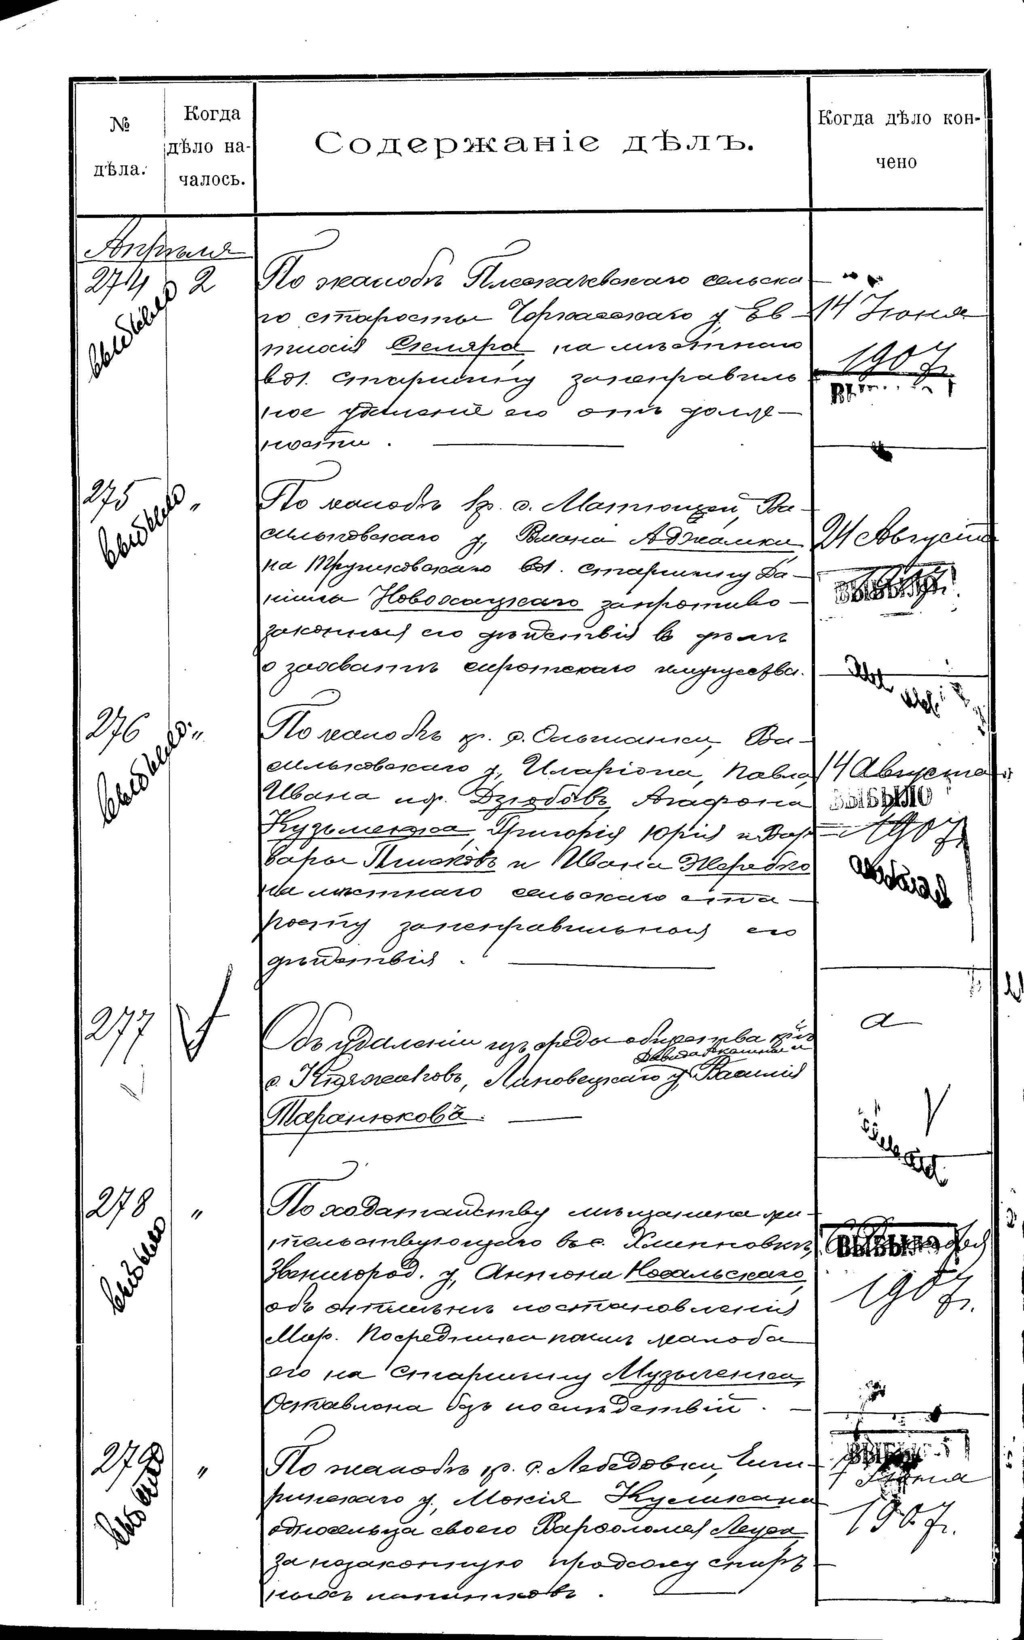 № дѣла.
Когда дѣло началось.
Содержаніе дѣлъ.
Когда дѣло кончено
Апрѣля
274 2
выбыло
По жалобѣ Плескачевскаго сельска-
го старосты Черкасскаго у. Ев-
тихія Скляра, на мѣстнаго
вол. старшину за неправиль
ное удаленіе его отъ долж-
ности.
14 Іюня
1907 г.
275 "
выбыло
По жалобѣ кр. с. Матюшей, Ва-
сильковскаго у. Романа Аджамки
на Трушковскаго вол. старшину Да-
ніила Новохацкаго за противо-
законныя его дѣйствія въ дѣлѣ
о захватѣ сиротскаго имущества.
24 Августа
1907 г.
ВЫБЫЛО
276 "
выбыло
По жалобѣ кр. с. Ольшанки, Ва-
сильковскаго у. Иларіона, Павла,
Ивана и др. Дзюбовъ, Агафона
Кузьменка, Григорія Юрія и Вар-
вары и Ивана Жеребко
на мѣстнаго сельскаго ста-
росту за неправильныя его
дѣйствія.
14 Августа
ВЫБЫЛО
1907 г.
выбыло
277
Объ удаленіи изъ среды общества кр.
с. Княжиковъ, Липовецкаго у. Василія
Таранюковъ.
278 "
выбыло
По ходатайству мѣщанина жи-
тельствующаго въ с. Хлипновкѣ,
Звенигород. у. Антона Косальскаго
объ отмѣнѣ постановленія
Мир. Посредника коимъ жалоба
его на старшину Музыченка,
Оставлена безъ послѣдствій.
ВЫБЫЛО
1907 г.
279 "
выбыло
По жалобѣ кр. с. Лебедовки,
у. Мокія Куликана
односельца своего Варфоломея
за незаконную продажу спирт-
ныхъ напитковъ.
Іюня
1907 г.